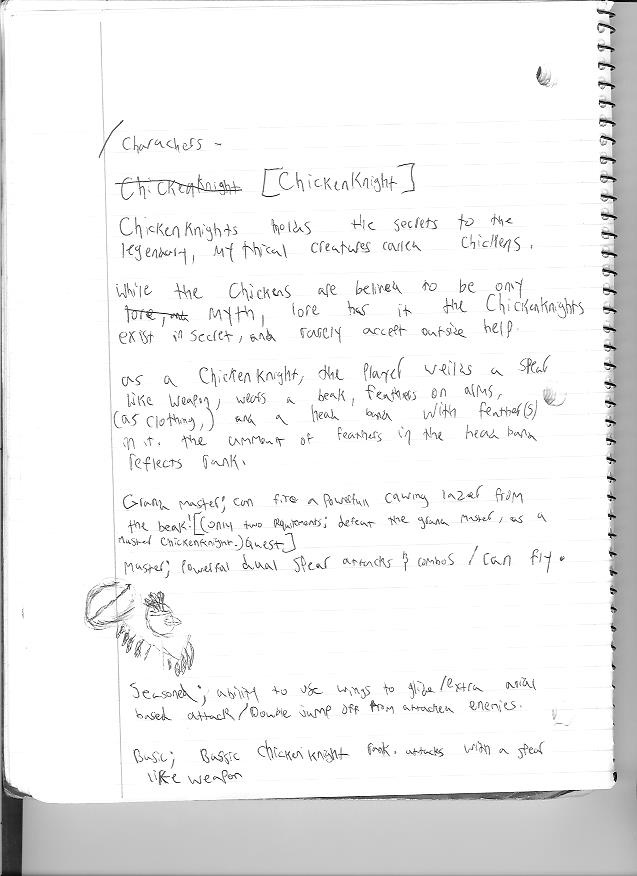 Charachers -
ChickenKnight [ChickenKnight]
ChickenKnights holds the secrets to the
legendary, mythical creatures called Chickens.
While the Chickens are belived to be only
lore, and Myth, lore has it the ChickenKnights
exist in secret, and rarely accept outside help.
as a ChickenKnight, the Player weilds a spear
like weapon, wears a beak, feathers on arms,
(as clothing,) and a head band with feather(s)
in it. the ammount of feathers in the head band
reflects rank.
Grand master; can fire a powerfull cawing lazer from
the beak! [(only two rquirments; defeat the grand master, as a
master ChickenKnight.) Quest]
Master; powerful dual spear attacks & combos / can fly.
Seasoned; ability to use wings to glide/extra arial
based attack/Double jump off from attacked enemies.
Basic; Bassic chicken knight rank. attacks with a spear
like weapon